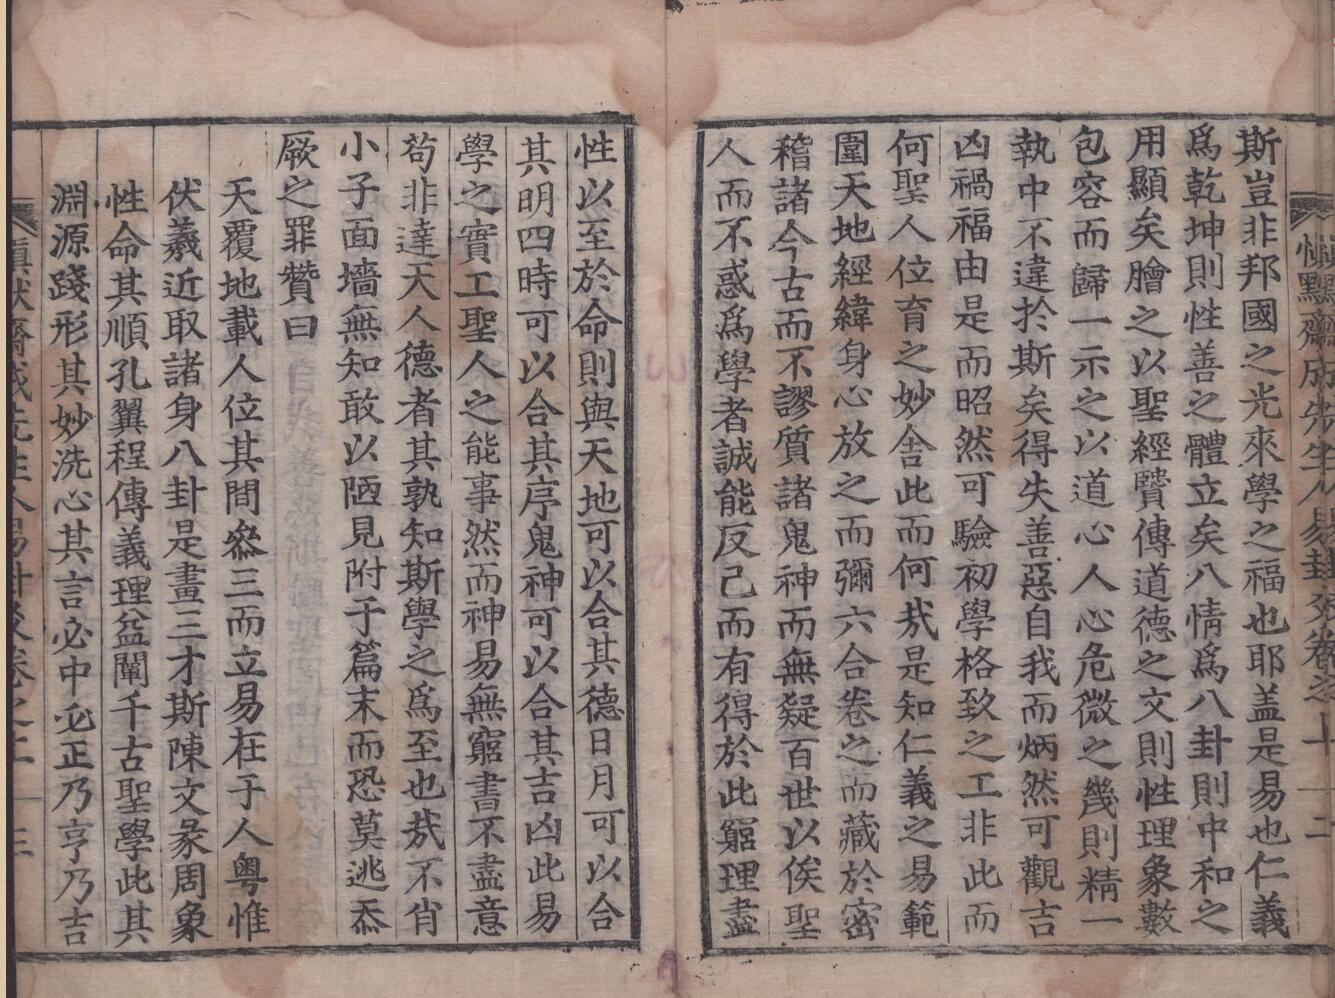 斯豈非邦國之光來學之福也耶盖是易也仁義
爲乾坤則性善之體立矣八情爲八卦則中和之
用顯矣膾之以聖經贒傳道德之文則性理象數
包容而歸一示之以道心人心危微之幾則精一
執中不違於斯矣得失善惡自我而炳然可觀吉
凶禍福由是而昭然可驗初學格致之工非此而
何聖人位育之妙舍此而何㢤是知仁義之易範
圍天地經緯身心放之而彌六合卷之而藏於密
稽諸今古而不謬質諸鬼神而無疑百世以俟聖
人而不惑爲學者誠能反己而有得於此窮理盡
性以至於命則與天地可以合其德日月可以合
其明四時可以合其序鬼神可以合其吉凶此易
學之實工聖人之能事然而神易無窮書不盡意
苟非達天人德者其孰知斯學之爲至也㢤不肖
小子面墻無知敢以陋見附于篇末而恐莫逃忝
厥之罪贊曰
天覆地載人位其間叅三而立易在于人粤惟
伏羲近取諸身八卦是畫三才斯陳文彖周象
性命其順孔翼程傳義理益闡千古聖學此其
淵源踐形其妙洗心其言必中必正乃亨乃吉